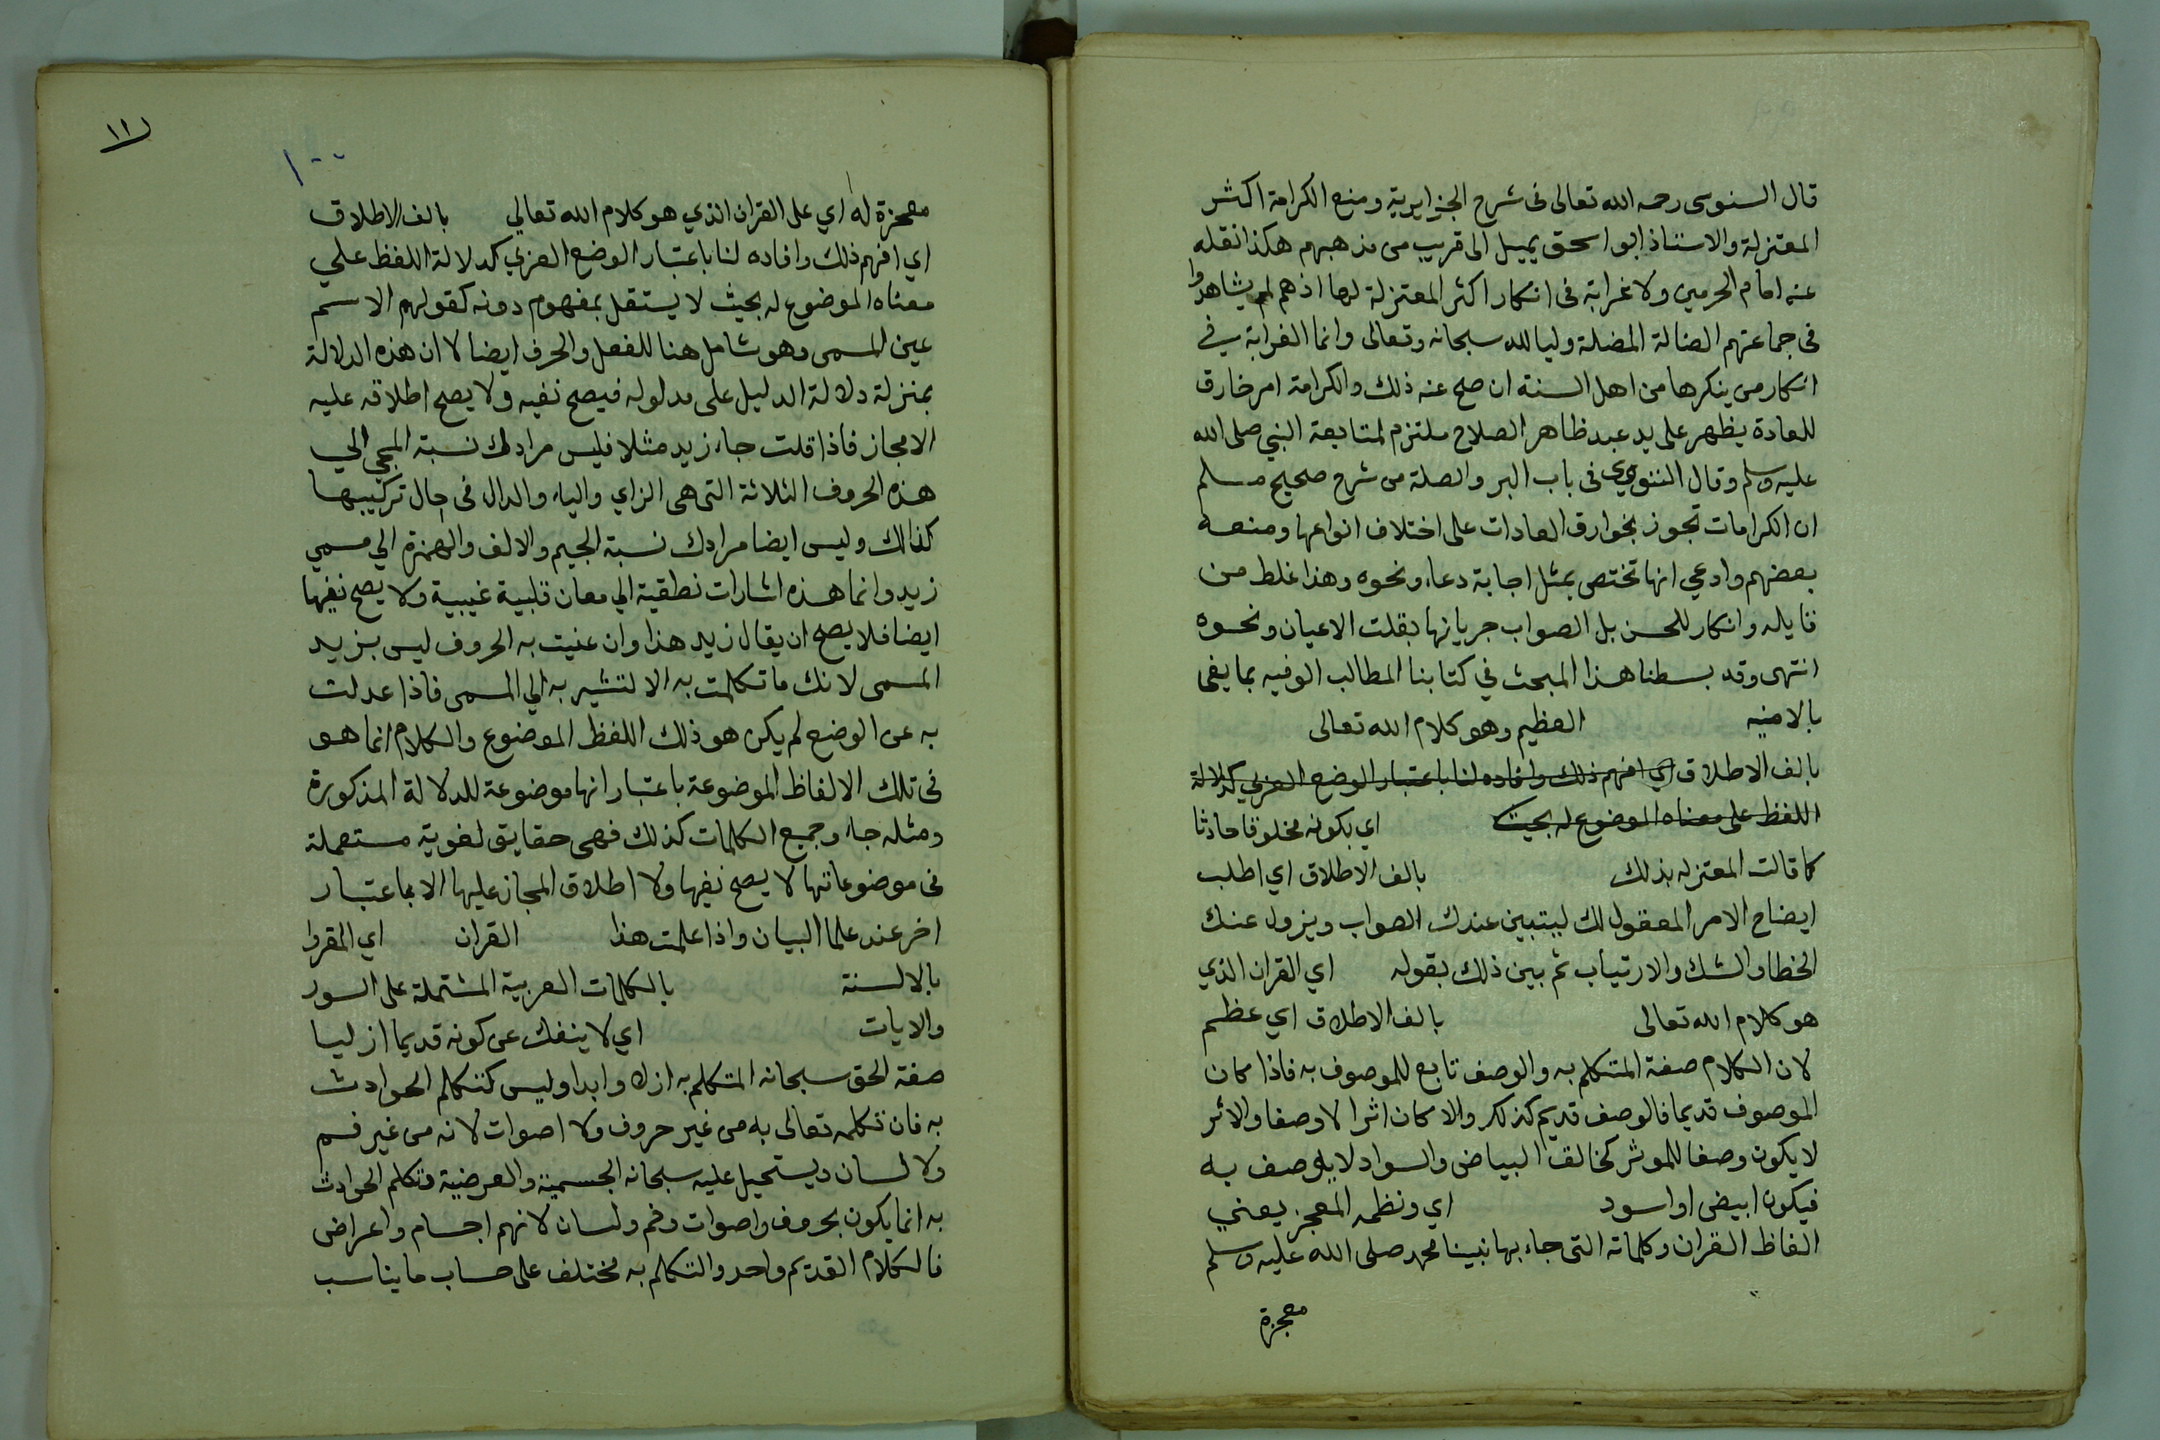 قال السنوسى رحمه الله تعالى فى شرح الجزايرية ومنع الكرامة اكثر
المعتزلة والاستاذ ابو اسحق يميل الى قريب من مذهبهم هكذا نقله
عنه امام الحرمين ولا غرابة فى انكار اكثر المعتزلة لها اذ هم لم يشاهدوا
فى جماعتهم الضالة المضلة وليا لله سبحانه وتعالى وانما الغرابة في
انكار من ينكرها من اهل السنة ان صح عنه ذلك والكرامة امر خارق
للعادة يظهر على يد عبد ظاهر الصلاح ملتزم لمتابعة النبي صلى الله
عليه وسلم وقال النووي فى باب البر والصلة من شرح صحيح مسلم
ان الكرامات تجوز بخوارق العادات على اختلاف انواعها ومنعه
بعضهم وادعي انها تختص بمثل اجابة دعاء ونحوه وهذا غلط من
قايله وانكار للحسن بل الصواب جريانها بقلت الاعيان ونحوه
انتهى وقد بسطنا هذا المبحث في كتابنا المطالب الوفيه بما يفى
بالامنيه العظيم وهو كلام الله تعالى
بالف الاطلاق اي افهم ذلك وافاده لنا باعتبار الوضع العربي كدلالة
اللفظ على معناه الموضوع له بحيث اي بكونه مخلوقا حادثا
كما قالت المعتزله بذلك بالف الاطلاق اي اطلب
ايضاح الامر المعقول لك ليتبين عندك الصواب ويزول عنك
الخطا والشك والارتياب ثم بين ذلك بقوله اي القران الذي
هو كلام الله تعالى بالف الاطلاق اي عظم
لان الكلام صفة المتكلم به والوصف تابع للموصوف به فاذا كان
الموصوف قديما فالوصف قديم كذلك والا كان اثرا لا وصفا والاثر
لا يكون وصفا للموثر كخالق البياض والسواد لا يوصف به
فيكون ابيض او اسود اي ونظمه المعجز يعني
الفاظ القران وكلماته التى جاء بها نبينا محمد صلى الله عليه وسلم
معجزة
١١
١٠٠
معجزة له اي على القران الذي هو كلام الله تعالي بالف الاطلاق
اي افهم ذلك وافاده لنا باعتبار الوضع العربي كدلالة اللفظ علي
معناه الموضوع له بحيث لا يستقل بمفهوم دونه كقولهم الاسم
عين المسمى وهو شامل هنا للفعل والحرف ايضا لا ان هذه الدلالة
بمنزلة دلالة الدليل على مدلوله فيصح نفيه ولا يصح اطلاقه عليه
الا مجاز فاذا قلت جاء زيد مثلا فليس مرادك نسبة المجي الي
هذه الحروف الثلاثة التى هى الزاي والياء والدال فى حال تركيبها
كذالك وليس ايضا مرادك نسبة الجيم والالف والهمزة الي مسمي
زيد وانما هذه اشارات نطقية الي معان قلبية غيبية ولا يصح نفيها
ايضا فلا يصح ان يقال زيد هذا وان عنيت به الحروف ليس بزيد
المسمى لانك ما تكلمت به الا لتشير به الي المسمى فاذا عدلت
به عن الوضع لم يكن هو ذلك اللفظ الموضوع والكلام انما هو
فى تلك الالفاظ الموضوعة باعتبار انها موضوعة للدلالة المذكورة
ومثله جاء وجميع الكلمات كذلك فهى حقايق لغوية مستعملة
فى موضوعاتها لا يصح نفيها ولا اطلاق المجاز عليها الا بما عتبار
اخر عند علما البيان واذا علمت هذا القران اي المقروا
بالالسنة بالكلمات العربية المشتملة على السور
والايات اي لا ينفك عن كونه قديما ازليا
صفة الحق سبحانه المتكلم به ازلا وابدا وليس كتكلم الحوادث
به فان تكلمه تعالى به من غير حروف ولا اصوات لانه من غير فم
ولا لسان ويستحيل عليه سبحانه الجسمية والعرضية وتكلم الحوادث
به انما يكون بحروف واصوات وفم ولسان لانهم اجسام واعراض
فالكلام القديم واحد والتكلم به مختلف على حساب ما يناسب